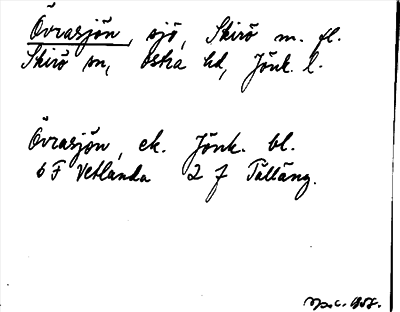 Övrasjön, sjö, Skirö m. fl.
Skirö sn, Östra hd, Jönk. l.
Övrasjön, ek. Jönk. bl.
6 F Vetlanda 2 f Tälläng.